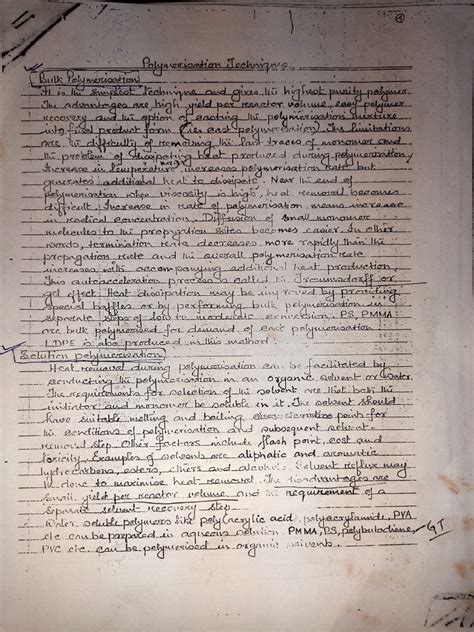 4
Polymerisation Techniques
Bulk Polymerisation
It is the simplest technique and gives the highest purity polymer.
The advantages are, high yield per reactor volume, easy polymer
recovery and the option of casting the polymerisation mixture
into final product form (ies cast polymerisation). The limitations
are the difficulty of removing the last traces of monomer and
the problem of dissipating heat produced during polymerisation.
Increase in temperature increases polymerisation rate but
generates additional heat to dissipate. Near the end of
polymerisation when viscosity is high, heat removal becomes
difficult. Increase in rate of polymerisation means increase
in radical concentration. Diffusion of small monomer
molecules to the propagation sites becomes easier. In other
words, termination rate decreases more rapidly than the
propagation rate and the overall polymerisation rate
increases with accompanying additional heat production.
This autoacceleration process is called the Trommsdorff or
gel effect. Heat dissipation may be improved by providing
special baffles or by performing bulk polymerisation in
separate steps of low to moderate conversion. PS, PMMA
are bulk polymerised for demand of cast polymerisation
LDPE is also produced in this method.
Solution polymerisation
Heat removal during polymerisation can be facilitated by
conducting the polymerisation in an organic solvent or water.
The requirements for selection of the solvent are that both the
initiator and monomer be soluble in it. The solvent should
have suitable melting and boiling point for
the conditions of polymerisation and subsequent solvent-
removal step. Other factors include flash point, cost and
toxicity. Examples of solvents are aliphatic and aromatic
hydrocarbons, esters, ethers and alcohols. Solvent reflux may
be done to maximise heat removal. The disadvantages are
small yield per reactor volume and the requirement of a
separate solvent recovery step.
Water soluble polymers like poly(acrylic acid, polyacrylamide, PVA
etc can be prepared in aqueous solution. PMMA, PS, polybutadiene,
PVC etc. can be polymerised in organic solvents.
GT